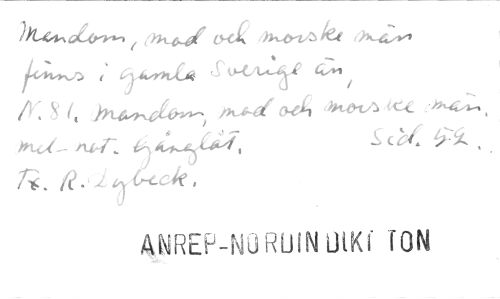 Mandom, mod och morske män
finns i gamla Sverige än,
N. 81. Mandom, mod och morske män.
mel-not. Gånglåt. Sid. 52.
Tx. R. Dybeck.
ANREP-NORDIN DIKT TON